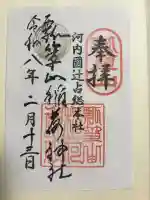 奉拝
河内國辻占総本社
瓢箪山稲荷神社
令和八年二月十三日